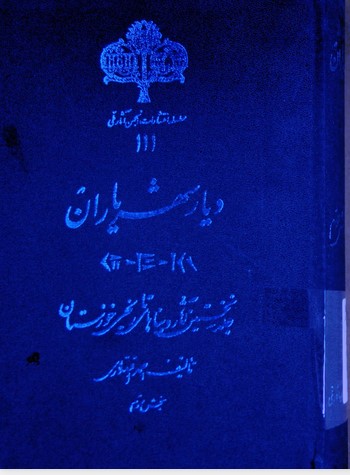 سلسله انتشارات انجمن آثار ملی
۱۱۱
دیار شهریاران
جلد نخستین آثار و بناهای تاریخی خوزستان
تألیف احمد اقتداری
بخش